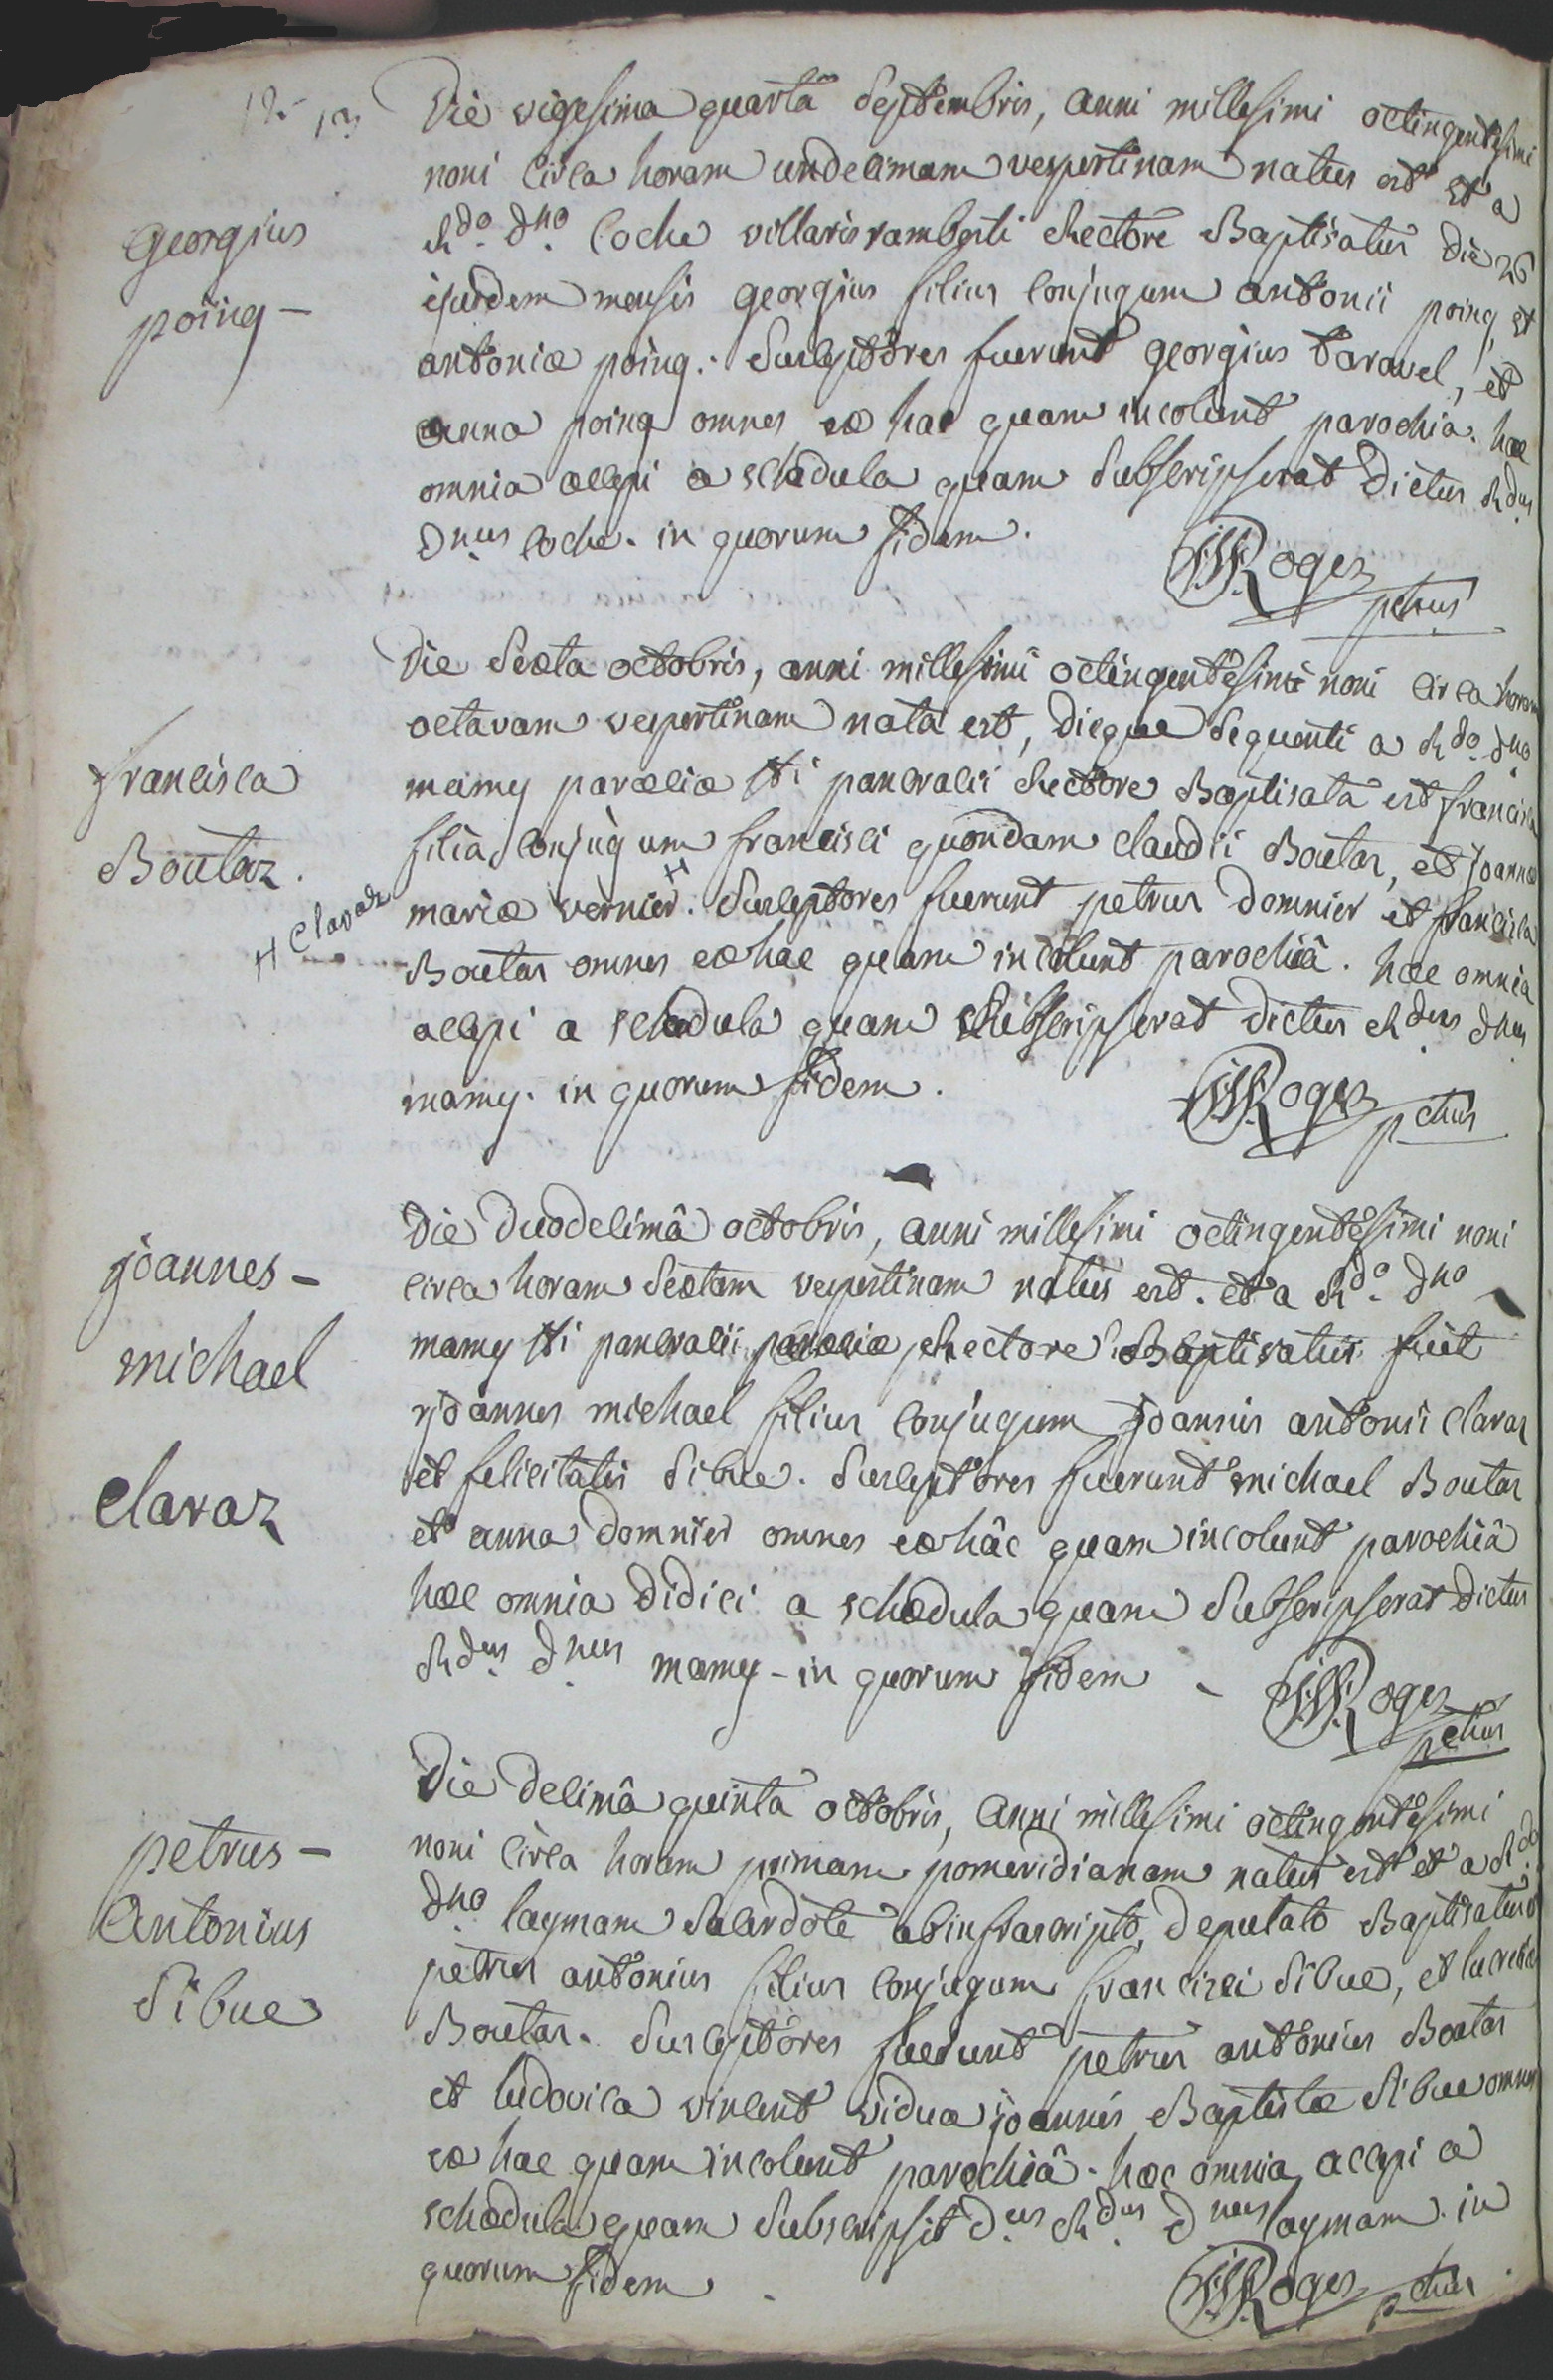 georgius
poing -
Die vigesima quarta Septembris, anni millesimi octingentesimi
noni circa horam undecimam vespertinam natus est et a
Rdo. Dno. Coche villarisramberti Rectore Baptisatus die 26
ejusdem mensis georgius filius conjugum antonii poing, et
antoniæ poing. Susceptores fuerunt georgius taravel, et
anna poing omnes ex hac quam incolunt parochia. hæc
omnia accepi a schedula quam Subscripserat Dictus Rdus.
Dnus Coche. in quorum fidem.
Roger
petrus
francisca
Boutaz.
H Clavaz
Die Sexta octobris, anni millesimi octingentesimi noni circa horam
octavam vespertinam nata est, Dieque Sequenti a Rdo. Dno
mamy parœciæ Sti pancratii Rectore Baptisata est francisca
filia conjugum francisci quondam claudii Boutaz, et joannæ
mariæ vernier H. Susceptores fuerunt petrus Domnier et francisca
Boutaz omnes ex hac quam incolunt parochiâ. hæc omnia
accepi a schædula quam Subscripserat Dictus Rdus Dnus
mamy. in quorum fidem.
Roger
petrus
joannes -
michael
Clavaz
Die Duodecimâ octobris, anni millesimi octingentesimi noni
circa horam Sextam vespertinam natus est. et a Rdo. Dno
mamy Sti pancratii parœciæ Rectore Baptisatus fuit
joannes michael filius conjugum joannis antonii clavaz
et felicitatis Sibue. Susceptores fuerunt michael Boutaz
et anna Domnier omnes ex hâc quam incolunt parochiâ
hæc omnia Didici a schædula quam Subscripserat Dictus
Rdus. Dnus mamy - in quorum fidem -
Roger
petrus
petrus -
Antonius
Sibue
Die Decimâ quinta octobris, anni millesimi octingentesimi
noni circa horam primam pomeridianam natus est et a Rdo.
Dno laymam Sacerdote ab infrascripto Deputato Baptisatus
petrus antonius filius conjugum francisci Sibue, et lucretiæ
Boutaz. Susceptores fuerunt petrus antonius Boutaz
et ludovica vincent vidua joannis Baptistæ Sibue omnes
ex hac quam incolunt parochiâ. hæc omnia accepi a
schædula quam Subscripsit Dus Rdus. Dnus laymam. in
quorum fidem.
Roger
petrus